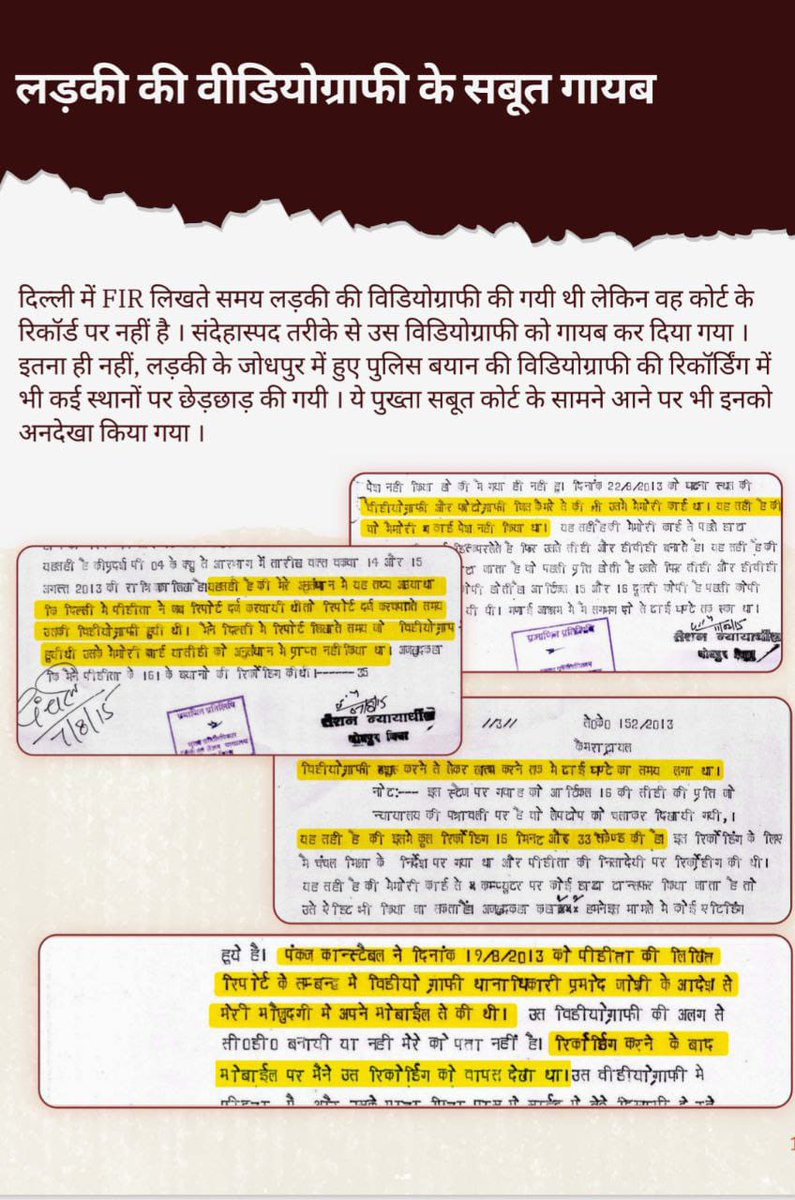 लड़की की वीडियोग्राफी के सबूत गायब
दिल्ली में FIR लिखते समय लड़की की विडियोग्राफी की गयी थी लेकिन वह कोर्ट के
रिकॉर्ड पर नहीं है । संदेहास्पद तरीके से उस विडियोग्राफी को गायब कर दिया गया ।
इतना ही नहीं, लड़की के जोधपुर में हुए पुलिस बयान की विडियोग्राफी की रिकॉर्डिंग में
भी कई स्थानों पर छेड़छाड़ की गयी । ये पुख्ता सबूत कोर्ट के सामने आने पर भी इनको
अनदेखा किया गया ।
पेश नही किया हो की मै गया ही नही हू। दिनांक 22/8/2013 को घटना स्थल की
वीडीयोग्राफी और फोटोग्राफी जिस कैमरे से की थी उसमे मेमोरी कार्ड था। यह सही है की
वो मेमोरी कार्ड पेश नही किया था। यह सही है की मेमोरी कार्ड से पहले डाटा
जाता है वो पहली प्रति होती है उससे फिर सीडी और डीवीडी
होती है आर्टिकल 15 और 16 दुसरी कोपी है पहली कोपी
थी। मणाई आश्रम मे मै लगभग दो से ढाई घण्टे तक रूका था।
प्रमाणित प्रतिलिपि
सैशन न्यायाधीश
जोधपुर जिला
यह सही है की प्रदर्श पी 04 के क्यु से आर भाग मे तारीख वक्त वकवा 14 और 15
अगस्त 2013 की रात्रि का लिखा है। यह सही है की मेरे अनुसंधान मे यह तथ्य आया था
कि दिल्ली मे पीडीता ने जब रिपोर्ट दर्ज करवायी थी तो रिपोर्ट दर्ज करवाते समय
उसकी विडीयोग्राफी हुयी थी। मैने दिल्ली मे रिपोर्ट लिखाते समय जो विडीयोग्राफी
हुयी थी उसके मेमोरी कार्ड या सीडी को अनुसंधान मे प्राप्त नही किया था। अजखुद कहा
कि मैने पीडीता के 161 के बयानो की रिकोर्डिंग की थी।------35
7/8/15
प्रमाणित प्रतिलिपि
सैशन न्यायाधीश
जोधपुर जिला
//3//
से०के० 152/2013
कैमरा ट्रायल
विडीयोग्राफी शुरू करने से लेकर खत्म करने तक मे ढाई घण्टे का समय लगा था।
नोट:--- इस स्टेज पर गवाह को आर्टिकल 16 की सीडी की प्रति जो
न्यायालय की पत्रावली पर है वो लेपटोप को चलाकर दिखायी गयी,।
यह सही है की इसमे कुल रिकोर्डिंग 16 मिनट और 33 सेकेण्ड की है। इस रिकोर्डिंग के लिए
मै चंचल मिश्रा के निर्देश पर गया था और पीडीता की निशादेही पर रिकोर्डींग की थी।
यह सही है की मेमोरी कार्ड से कम्प्युटर पर कोई डाटा ट्रान्सफर किया जाता है तो
उसे ऐडिट भी किया जा सकता है। अजखुद कहा हमने इस मामले मे कोई एडिटिंग
हूये है। पंकज कान्स्टेबल ने दिनांक 19/8/2013 को पीडीता की लिखित
रिपोर्ट के सम्बन्ध मे विडीयो ग्राफी थानाधिकारी प्रमोद जोशी के आदेश से
मेरी मौजुदगी मे अपने मोबाईल से की थी। उस विडीयोग्राफी की अलग से
सी०डी० बनायी या नही मेरे को पता नही है। रिकोर्डिंग करने के बाद
मोबाईल पर मैने उस रिकोर्डिंग को वापस देखा था। उस वीडीयोग्राफी मे